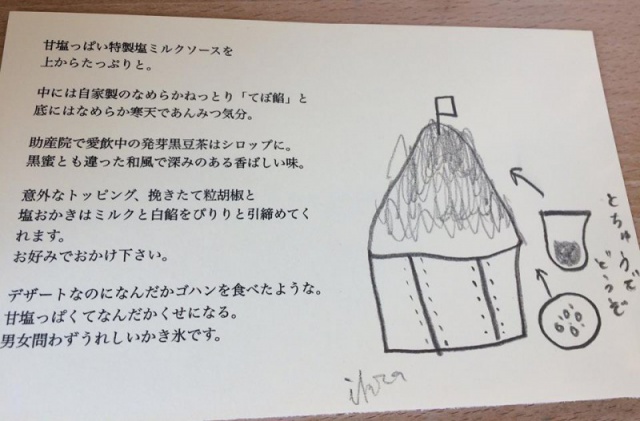 甘塩っぱい特製塩ミルクソースを
上からたっぷりと。
中には自家製のなめらかねっとり「てぼ餡」と
底にはなめらか寒天であんみつ気分。
助産院で愛飲中の発芽黒豆茶はシロップに。
黒蜜とも違った和風で深みのある香ばしい味。
意外なトッピング、挽きたて粒胡椒と
塩おかきはミルクと白餡をぴりりと引締めてく
れます。
お好みでおかけ下さい。
デザートなのになんだかゴハンを食べたような。
甘塩っぱくてなんだかくせになる。
男女問わずうれしいかき氷です。
とちゅうで
どうぞ